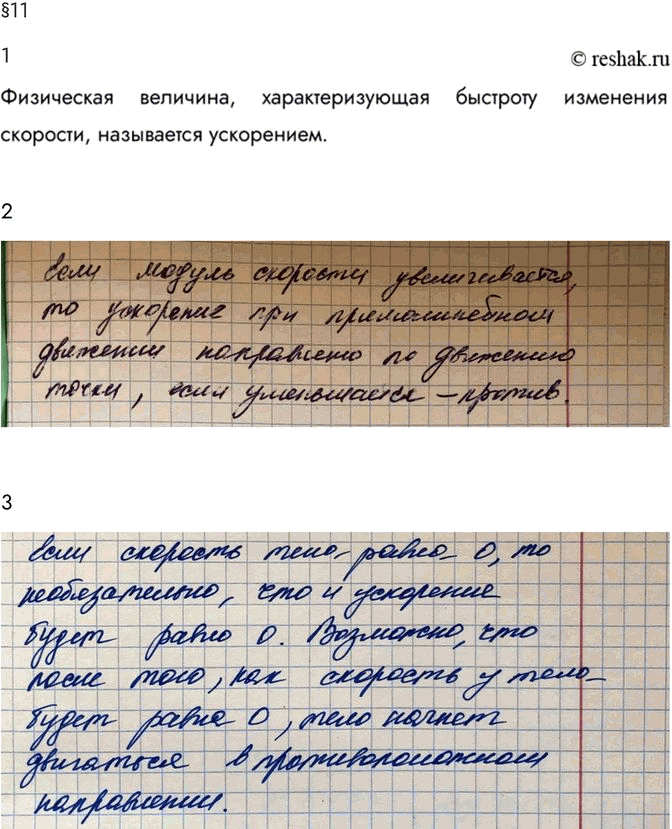 §11
1
© reshak.ru
Физическая величина, характеризующая быстроту изменения
скорости, называется ускорением.
2
Если модуль скорости увеличивается,
то ускорение при прямолинейном
движении направлено по движению
точки, если уменьшается – против.
3
Если скорость тела равна 0, то
необязательно, что и ускорение
будет равно 0. Возможно, что
после того, как скорость у тела
будет равна 0, тело начнет
двигаться в противоположном
направлении.